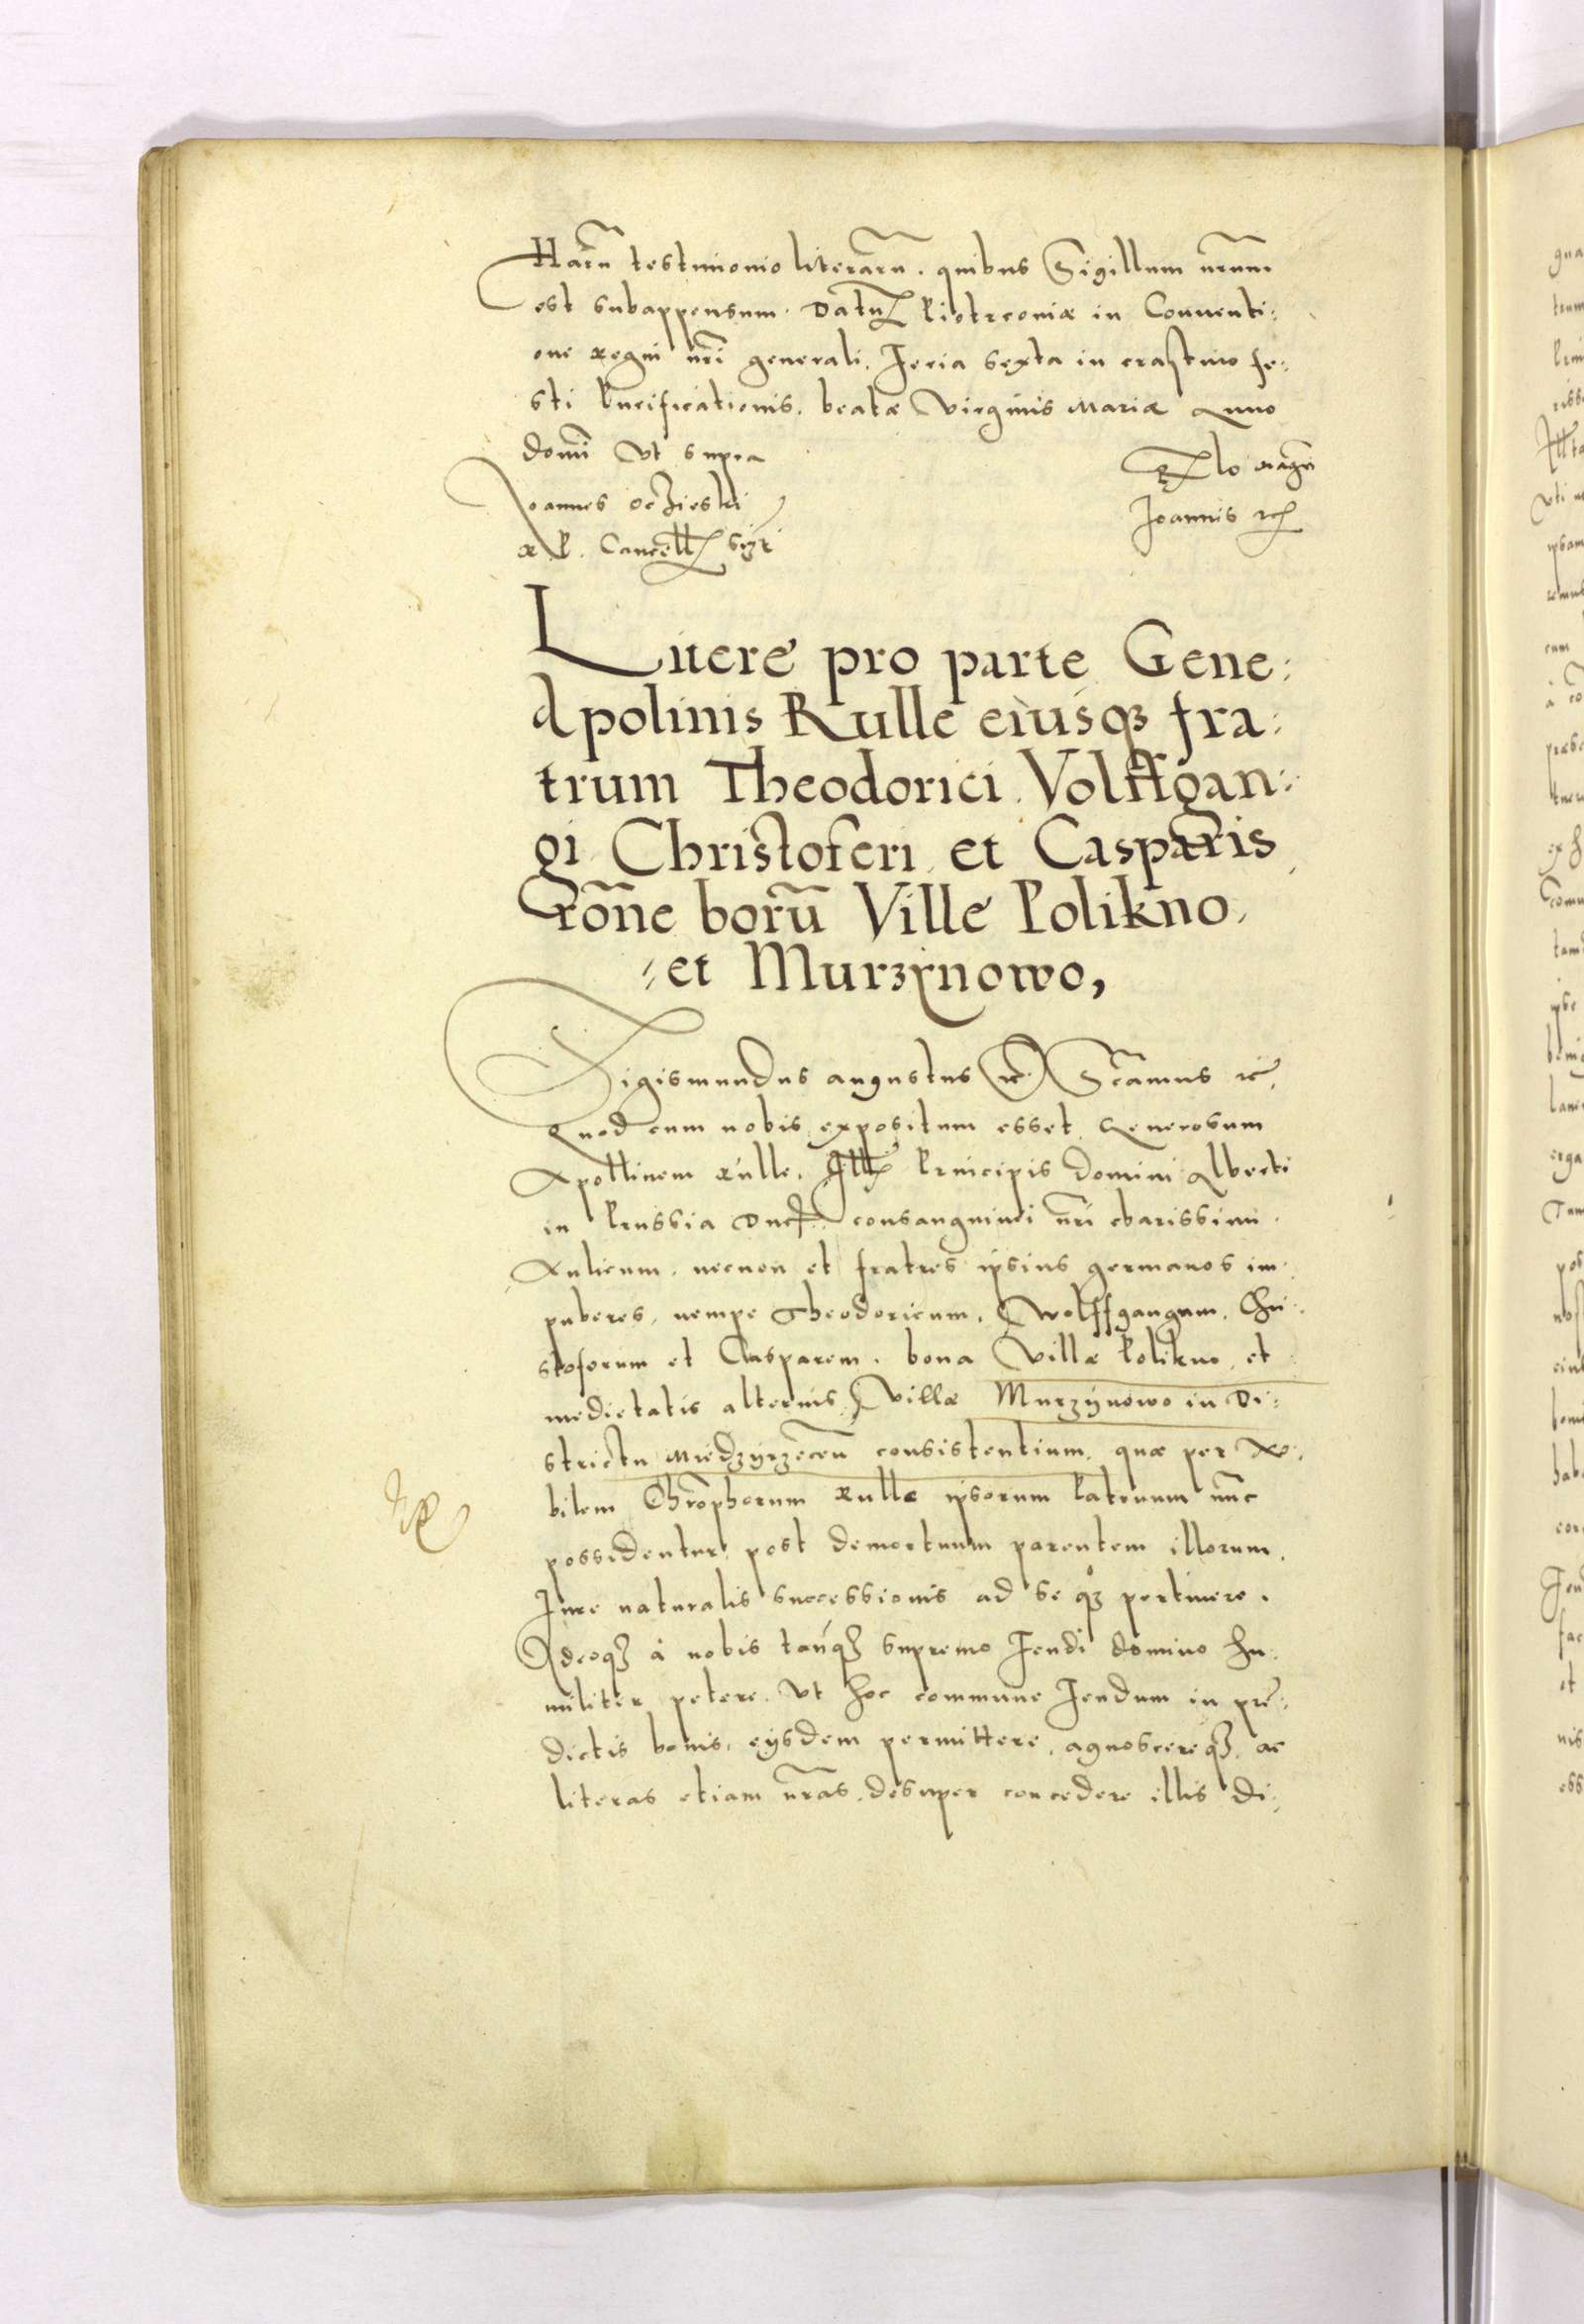 Harū testimonio literarū. quibus Sigillum nr̄um
est subappensum. Datuȝ Piotrconiæ in Conuenti:
one regni nr̄i generali. Feria sexta in crastino fe:
sti Purificationis. beatæ Virginis Mariæ Anno
Domi ut supra
Rȝlo magci
Joannes Oczieski
Joannis ꝛc
R P. Cancell
Litere pro parte Gene:
Apolinis Rulle eiusqȝ fra:
trum Theodorici Volffgan:
gi Christoferi et Casparis
rōne bonorū Ville Polikno
et Murzynowo,
Sigismundus augustus ꝛc Sc̄amus ꝛc
Quod cum nobis expositum esset Generosum
Apollinem Rulle. Ill Principis Domini Alberti
in Prussia Duc consanguinei nr̄i charissimi.
Aulicum. necnon et fratres ipsius germanos im:
puberes, nempe Theodoricum, Wolffgangum. Chri:
stoferum et Casparem. bona Villæ Polikno et
medietatis alterius Villæ Murzynowo in Di:
strictu Miedzyrzecen̄ consistentium. quæ per No:
bilem Chrōphorum Rulle ipsorum Patruum nūc
possidentur post demortuum parentem illorum.
Jure naturalis successionis ad se qȝ pertinere.
Adeoqȝ à nobis tanqȝ supremo Feudi domino hu:
militer petere. Ut hoc commune Feudum in præ:
dictis bonis. eysdem permittere, agnoscereqȝ. ac
literas etiam nr̄as. desuper concedere illis di: